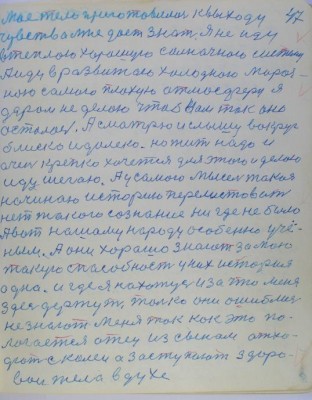 мое тело приготовилось к выходу 47
чувства мне дает знат, я не иду
в теплою хорошую солнечного систему
А иду в развитаю холодного мароз-
ною самого плохую атмосферу я
даром не делаю чтоб Вам так оно
осталос. А сматрю и слышу вокруг
блиско и далеко. но жит надо и
очен крепко хочется для этого и делаю
иду шегаю. А у самого мысел такая
начинаю историю перелистоват
нет такого сознание ни где не было
А вот нашему народу особенно учё-
ным. А они хорошо знают за мою
такую способность у них история
одна. и где я нахожус и за что меня
здес держут, только они ошиблис
не знают меня так как это по-
логается отец из сыном отхо-
дют с колен а заступают здоро-
вои тела в духе